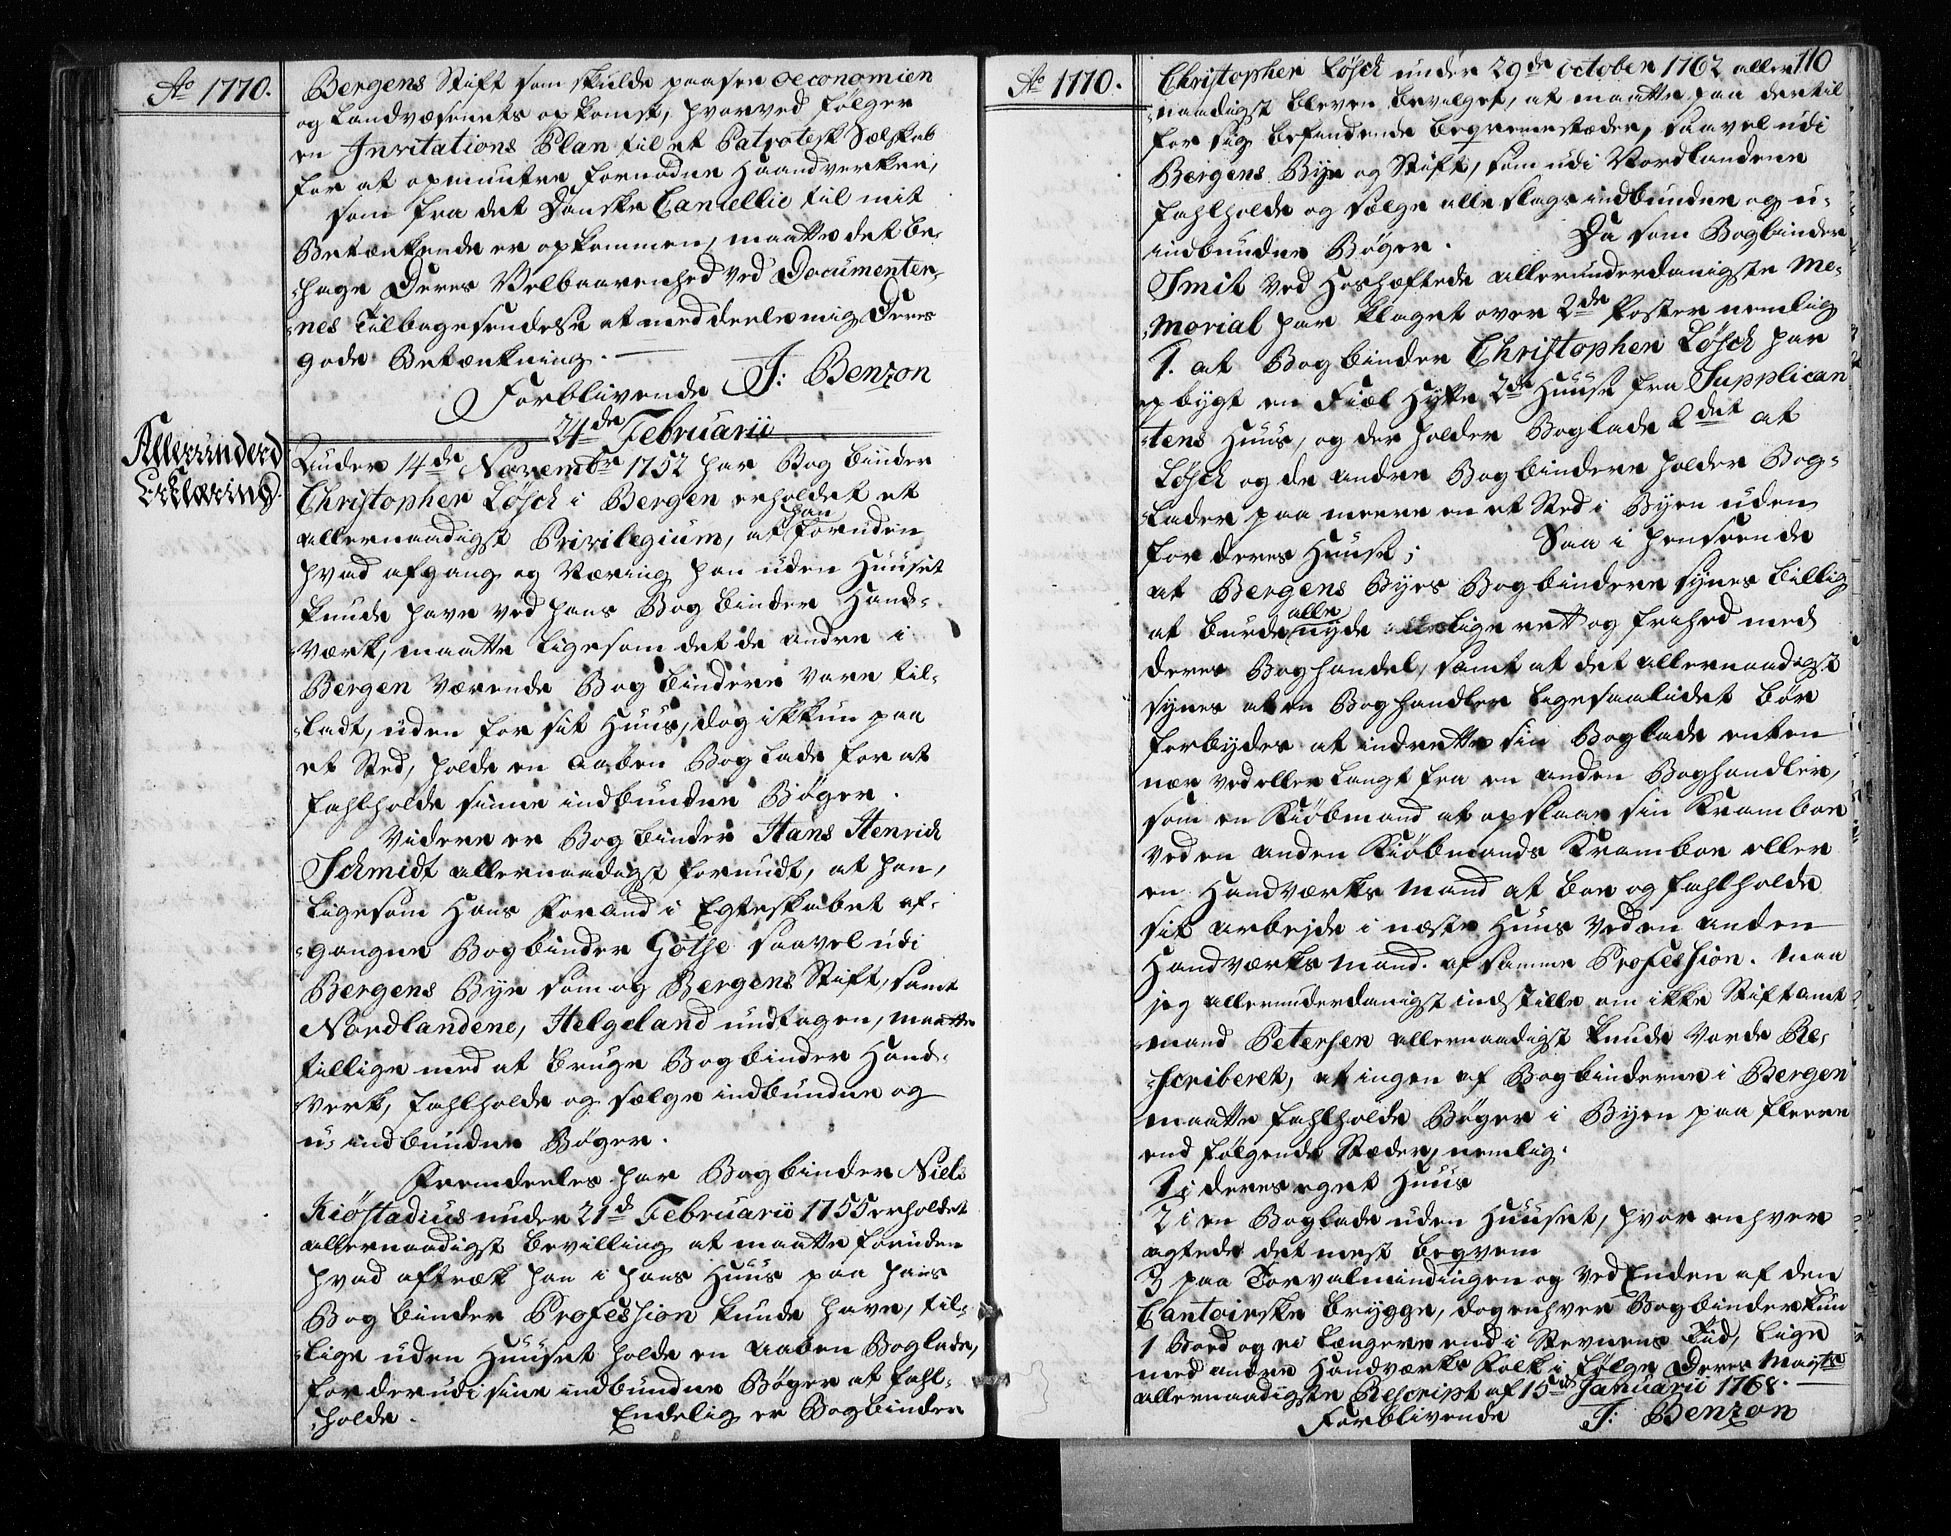 Ao 1770.
Bergens Stift som skulde paasee oeconomien
og Landvæsenets opkomst, hvorved følger
en Invitations Plan til et Patriotisk Sælskab
for at opmuntre fornødne Haandverker,
som fra det Danske Cancellie til mit
Betænkende er opkommen, maatte det be-
-hage Deres Velbaarenhed ved Documenter-
-nes Tilbagesendelse at meddeele mig Deres
gode Betænkning.
Forblivende J: Benzon
24de Februarii
Allerunderd
Erklæring.
Under 14de Novembr 1752 har Bogbinder
Christopher Lösch i Bergen erholdet et
allernaadigst Privilegium, at han foruden
hvad afgang og Næring han uden Huuset
kunde have ved hans Bogbinder Hand-
-værk, maatte ligesom det de andre i
Bergen værende Bogbindere vare til-
-ladt, uden for sit Huus, dog ikkun paa
et Sted, holde en aaben Boglade for at
fahlholde sinne indbundne Bøger.
Videre er Bogbinder Hans Henrich
Schmidt allernaadigst forundt, at han,
ligesom Hans Formand i Egteskabet af-
-gangne Bogbinder Göthe saavel udi
Bergens Bye som og Bergens Stift, samt
Nordlandene, Helgeland undtagen, maatte
tillige med at bruge Bogbinder Hand-
-verk, fahlholde og sælge indbundne og
u-indbundne Bøger.
Fremdeeles har Bogbinder Niels
Kiöstadius under 21d Februarii 1755 erholdet
allernaadigst bevilling at maatte foruden
hvad aftræk han i hans Huus paa hans
Bogbinder Profession kunde have, til-
-lige uden Huuset holde en aaben Boglade,
for derudi sine indbundne Bøger at fahl-
-holde. Endelig er Bogbinder
Ao 1770.
110
Christopher Lösch under 29de october 1762 aller-
-naadigst bleven bevilget, at maatte paa dertil
for sig befindende beqvemme stæder, saavel udi
Bergens Bye og Stift, som udi Nordlandene
fahlholde og sælge alle slags indbundne og u-
indbundne Bøger. Da som Bogbinder
Smit ved Hoshæftede allerunderdanigste Me-
-morial har klaget over 2de Poster nemlig
1. at Bogbinder Christopher Lösch har
opbygt en Fiæl Hytte 2de Huuse fra Supplican
-tens Huus, og der holder Boglade 2det at
Lösch og de andre Bogbindere holder Bog-
-lader paa meere en et Sted i Byen uden
for deres Huuse; Saa i henseende
at Bergens Byes Bogbindere synes billig
at burde alle nyde lige rett og frihed med
deres Boghandel, samt at det allernaadigst
synes at en Boghandler ligesaalidet bør
forbydes at indrette sin Boglade enten
nær ved eller langt fra en anden Boghandler,
som en Kiøbmand at opslaae sin Kramboe
ved en anden Kiøbmands Kramboe eller
en Handværks Mand at boe og fahlholde
sit arbejde i næste Huus ved en anden
Handværks Mand af samme Profession. Maa
jeg allerunderdanigst indstille om ikke Stiftamt
-mand Petersen allernaadigst kunde vorde Re-
-scriberet, at ingen af Bogbinderne i Bergen
maatte fahlholde Bøger i Byen paa fleere
end følgende Stæder, nemlig:
1 i deres eget Huus
2 i en Boglade uden Huuset, hvor enhver
agtede det mest beqvem
3 paa Torvalmindingen og ved Enden af den
Cantoirske brygge, dog enhver Bogbinder kun
1 Boed og ei længere end i Stevnens Tiid, lige
med andre Handværks Folk i følge Deres Maysts
allernaadigste Rescript af 15de Januarii 1768.
Forblivende J: Benzon